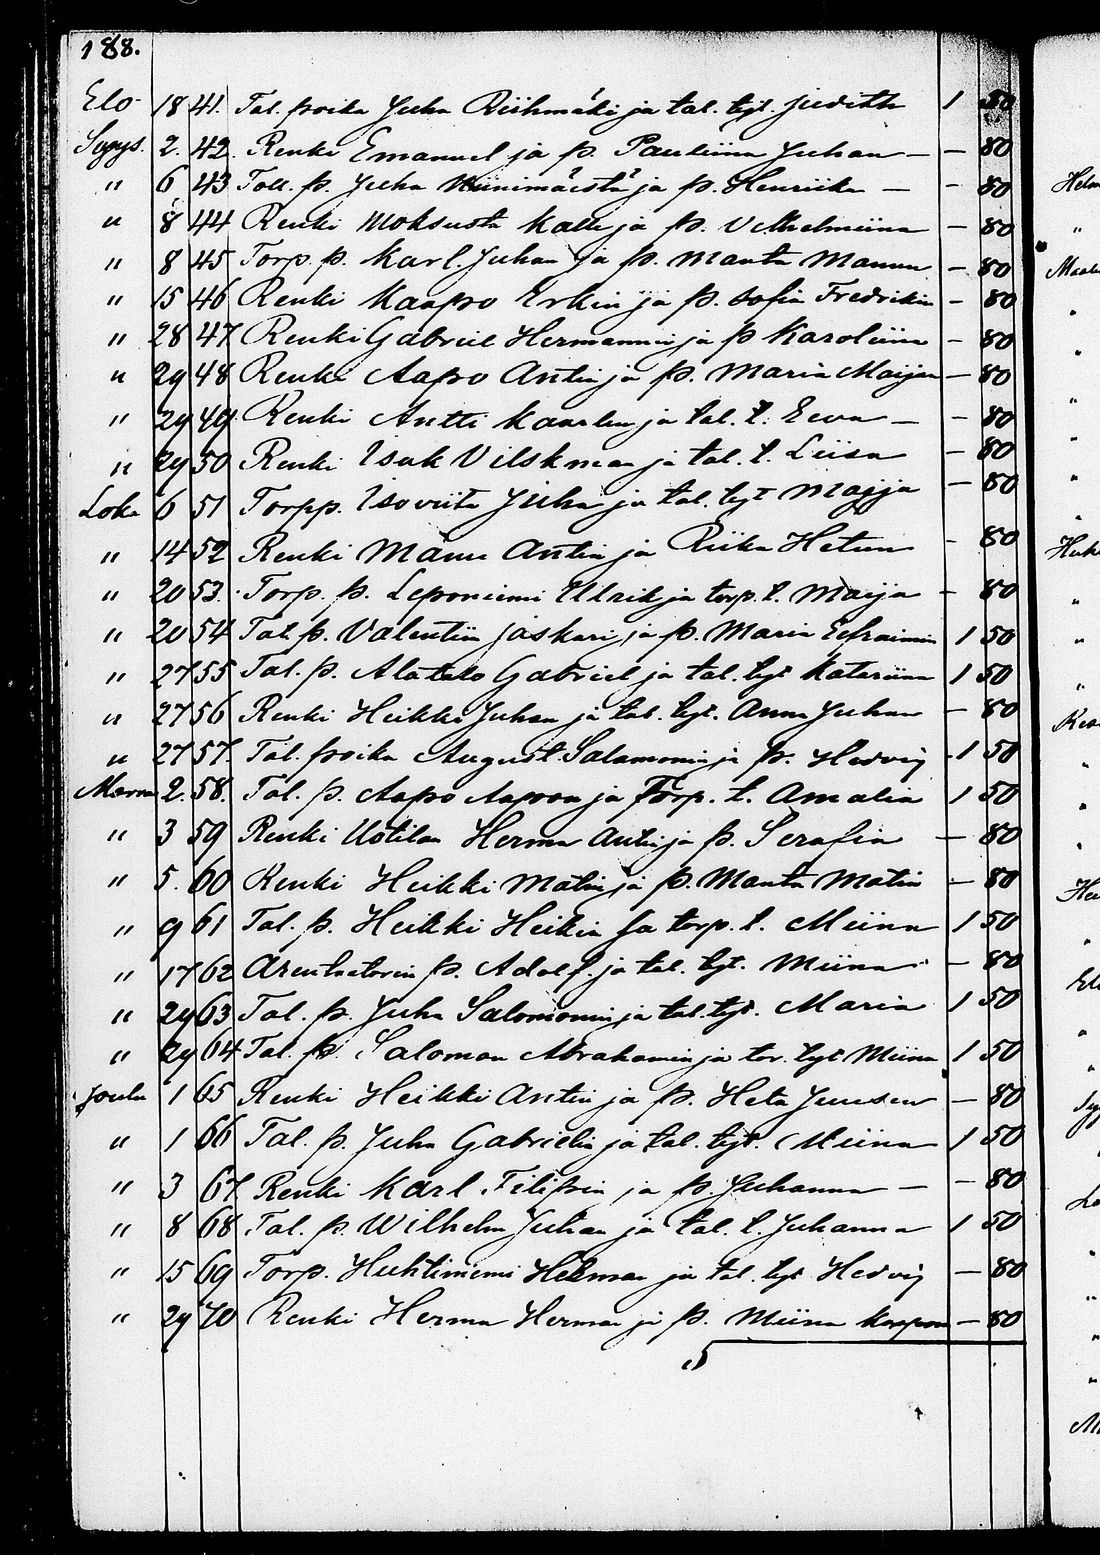 188.
Elo 18 41. Tal. poika Juha Riihimäki ja tal. tyt. Juditha 1 50
Syys. 2. 42. Renki Emanuel ja p. Pauliina Juhan — — 80
" 6 43 Tal. p. Juha Niinimäestä ja p. Henriika — - 80
" 8 44 Renki Moksusta Kalle ja p. Vilhelmiina - 80
" 8 45 Torp. p. Karl Juhan ja p. Manta Mannu - 80
" 15 46 Renki Kaapro Erkin ja p. Sofia Fredrikin - 80
" 28 47 Renki Gabriel Hermannin ja p Karoliina - 80
" 29 48 Renki Aapro Antin ja p. Maria Maijan - 80
" 29 49 Renki Antti Kaarlen ja tal. t. Eeva — - 80
" 29 50 Renki Isak Vilskman ja tal. t. Liisa - 80
Loka 6 51 Torpp. Isoviita Juha ja tal. tyt Maija - 80
" 14 52 Renki Manu Antin ja Riika Hetun - 80
" 20 53. Torp. p. Leponiemi Ulrik ja torp. t. Maija - 80
" 20 54 Tal. p. Valentiin Jaskari ja p. Maria Eefraimin 1 50
" 27 55 Tal. p. Alatalo Gabriel ja tal. tyt Katariina 1 50
" 27 56 Renki Heikki Juhan ja tal. tyt. Anna Juhan - 80
" 27 57. Tal. poika August Salamonin ja p. Hedvig 1 50
Marras 2. 58. Tal. p. Aapro Aapron ja Torp. t. Amalia 1 50
" 3 59 Renki Uotilan Herman Antin ja p. Serafia - 80
" 5. 60 Renki Heikki Matin ja p. Manta Matin - 80
" 9 61 Tal. p. Heikki Heikin ja torp. t. Miina 1 50
" 17 62 Arentaatorin p. Adolf. ja tal. tyt. Miina - 80
" 29 63 Tal. p. Juha Salomonin ja tal. tyt. Maria 1 50
" 29 64 Tal. p. Saloman Abrahamin ja tor. tyt Miina 1 50
Joulu 1 65 Renki Heikki Antin ja p. Heta Juusen - 80
" 1 66 Tal. p. Juha Gabrielin ja tal. tyt. Miina 1 50
" 3 67 Renki Karl Filipin ja p. Juhanna — - 80
" 8 68 Tal. p. Wilhelm Juhan ja tal. t. Juhanna 1 50
" 15 69 Torp. Huhtiniemi Heman ja tal. tyt Hedvig - 80
" 29 70 Renki Herman Herman ja p. Miina Kaapon - 80